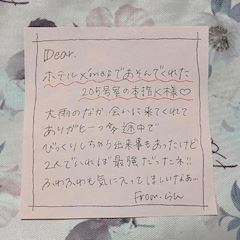 Dear.
ホテルXmasであそんでくれた
205号室の本指K様♡
大雨のなか、会いに来てくれて
ありがとーっ 途中で
びっくりしちゃう出来事もあったけど
2人でいれば最強だったネ!!
ふわふわも気に入ってほしいなぁ…
From.らん